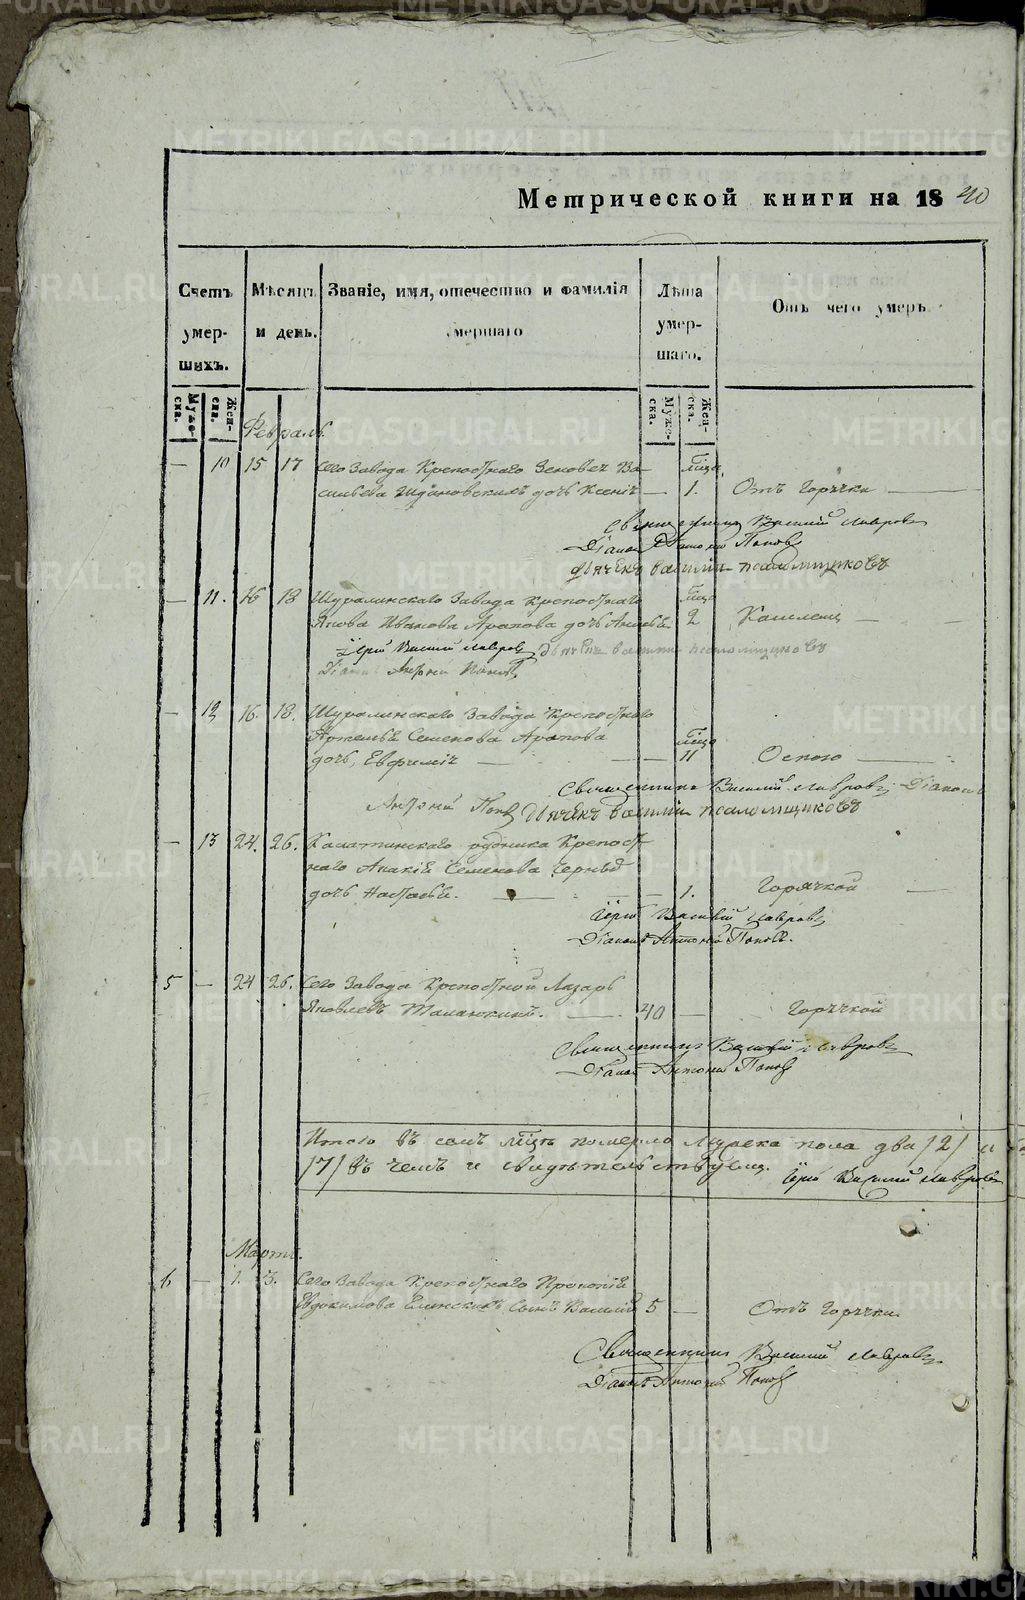 Метрической книги на 1840
Счетъ умершихъ.
Мѣсяцъ и день.
Званіе, имя, отечество и фамилія умершаго
Лѣта умершаго.
Отъ чего умеръ.
Мужеска.
Женска.
Мужеска.
Женска.
Февраль
— 10 15 17 Сего Завода Крепостнаго Зеновея Ва-
сильева дочь Ксенія — 1. Отъ Горячки
Священникъ Василій Лавровъ
Діаконъ Антоній Поповъ
Дьячекъ Василій Псаломщиковъ
— 11. 16 18 Шуралинскаго Завода Крепостнаго
Якова Иванова Арапова дочь 2 Кашлемъ
Іерей Василій Лавровъ Дьячекъ Василій Псаломщиковъ
Діаконъ Антоній Поповъ
— 12 16. 18. Шуралинскаго Завода Крепостнаго
Артемья Семенова Арапова
дочь Евфимія — 11 Оспою
Священникъ Василій Лавровъ, Діаконъ
Антоній Поповъ Дьячекъ Василій Псаломщиковъ
— 13 24. 26. Калатинскаго рудника Крепост-
наго Семенова
дочь Настасья. — 1. Горячкой
Іерей Василій Лавровъ
Діаконъ Антоній Поповъ.
5 — 24 26. Сего Завода Крепостной Лазарь
Яковлевъ Таланкинъ. 40 — Горячкой
Священникъ Василій Лавровъ
Діаконъ Антоній Поповъ
Итого въ семъ мѣсяцѣ померло Мужеска пола два /2/ и
/7/ въ чемъ и свидѣтельствуемъ. Іерей Василій Лавровъ
Мартъ.
6 — 1. 3. Сего Завода Крепостнаго Прокопія
Евдокимова сынъ Василій 5 — Отъ Горячки
Священникъ Василій Лавровъ
Діаконъ Антоній Поповъ
METRIKI.GASO-URAL.RU